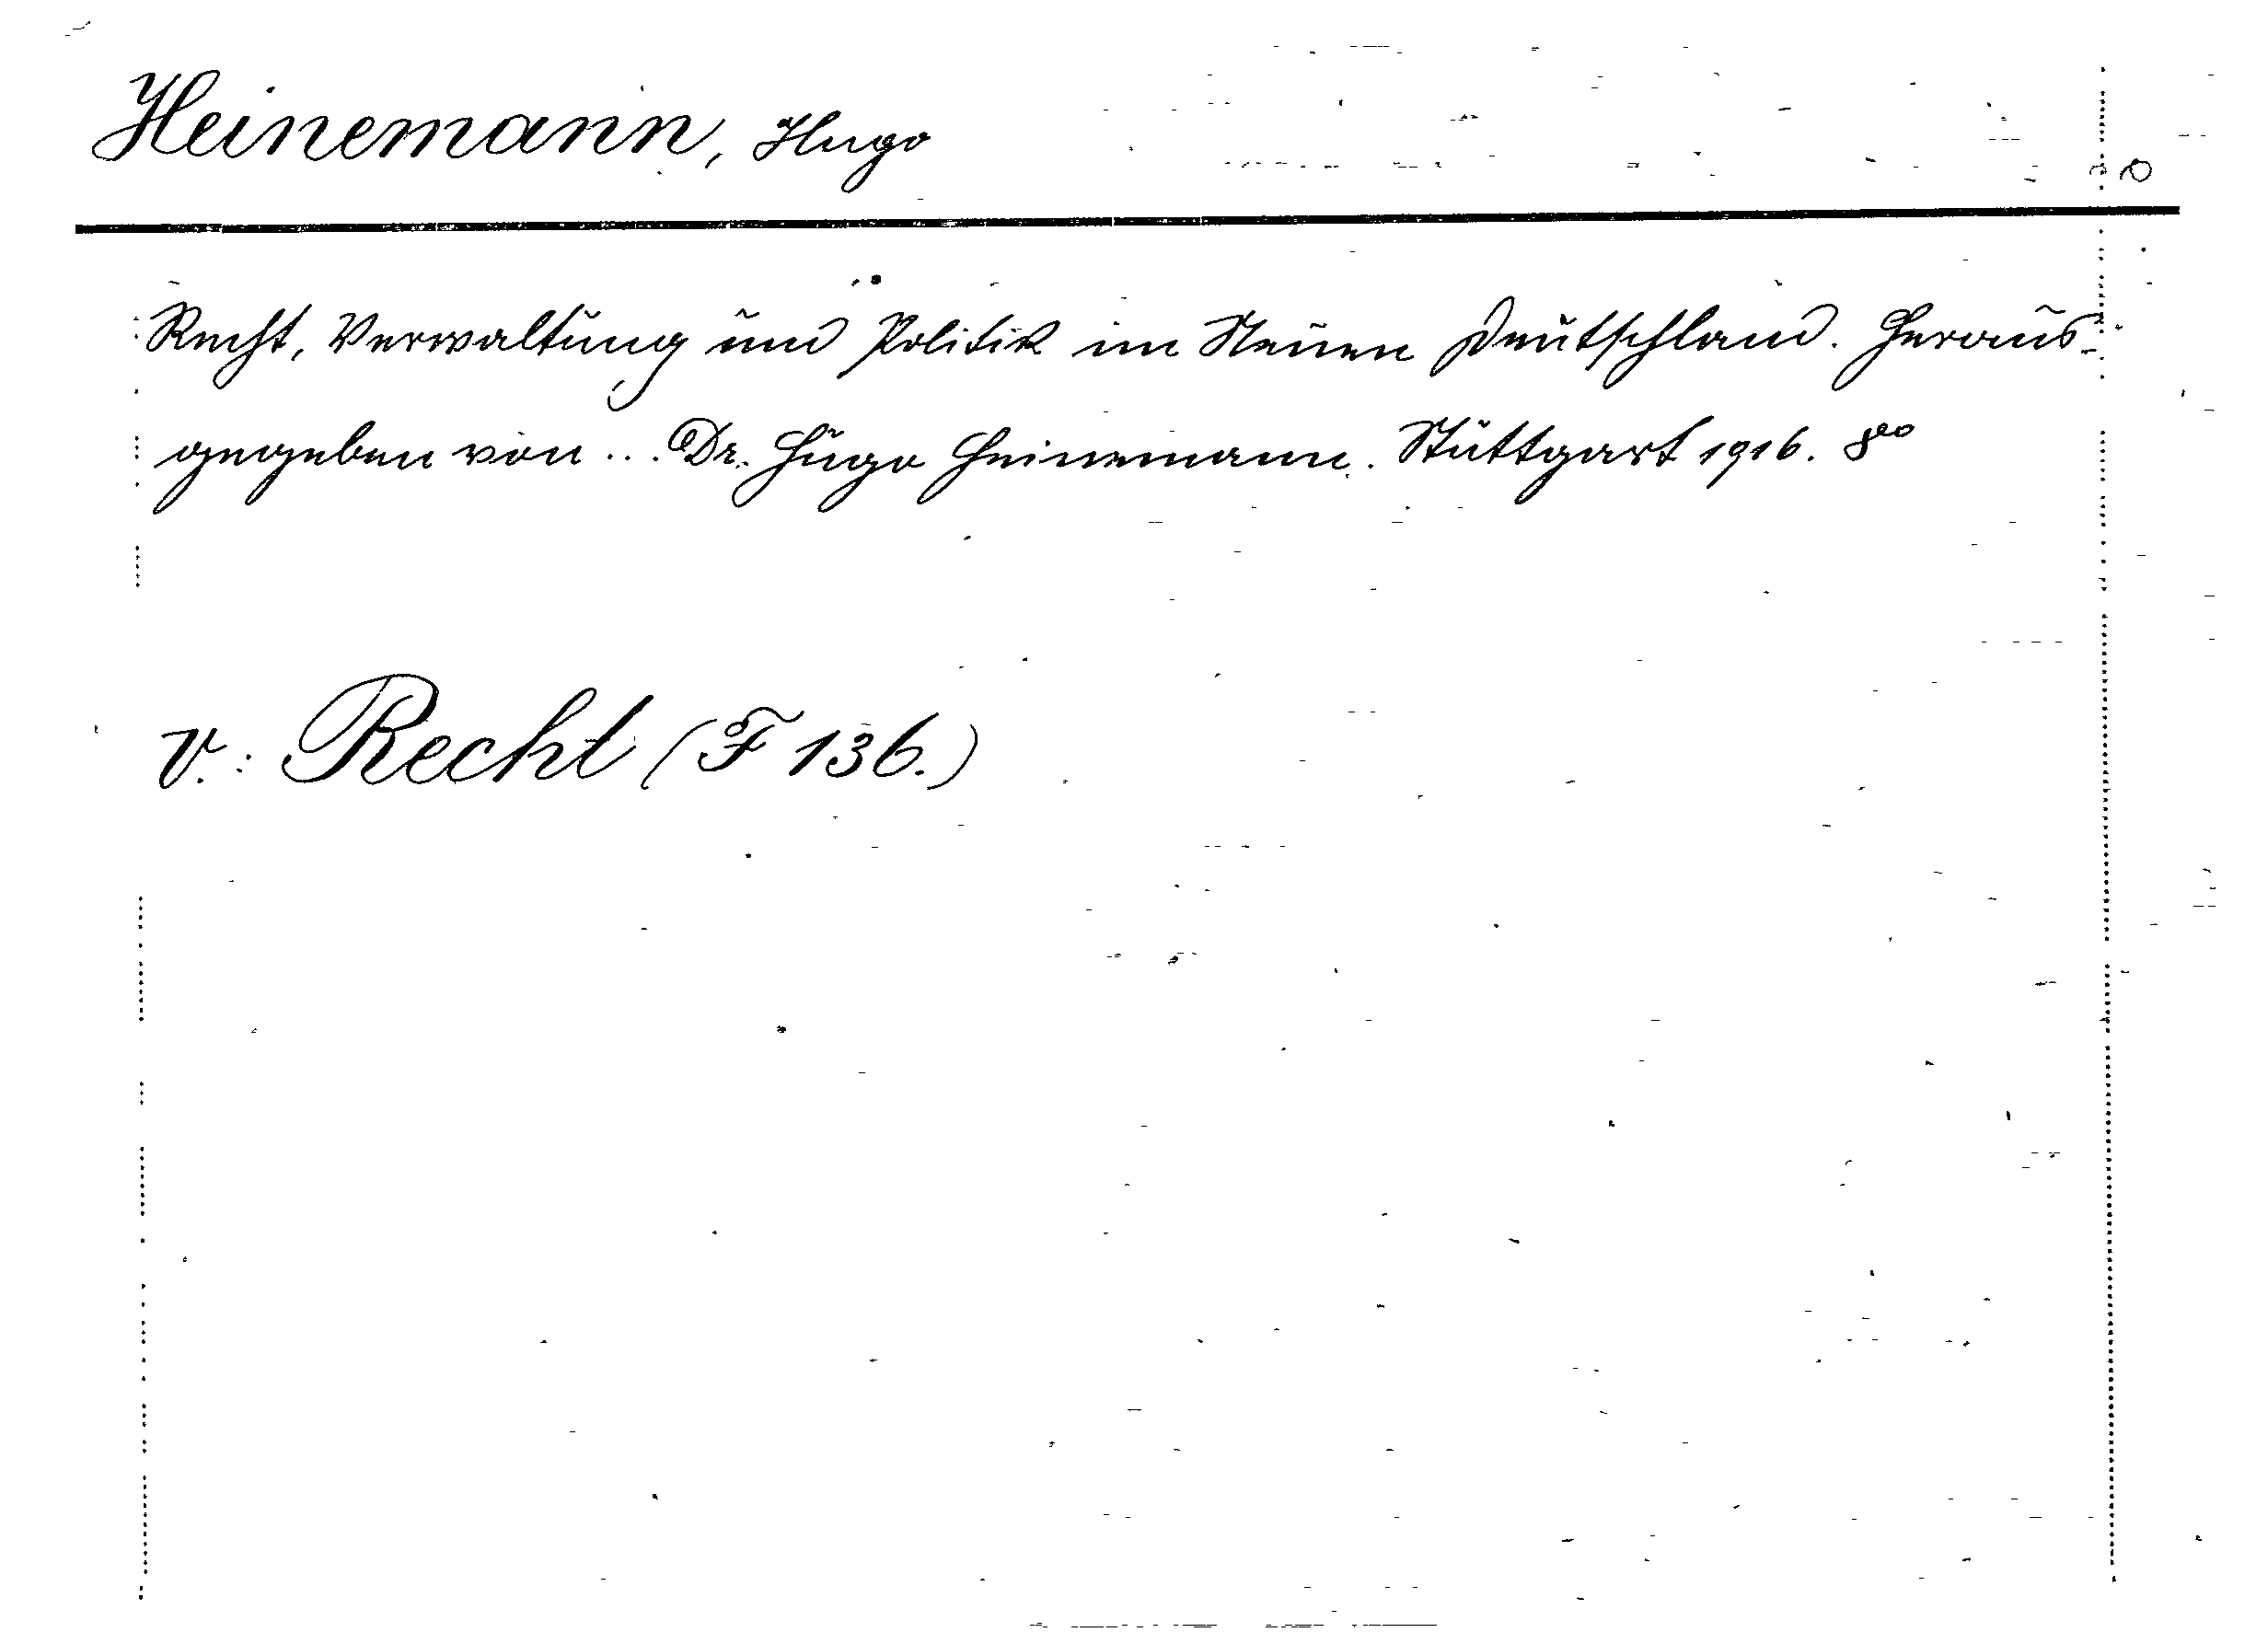 Heinemann, Hugo
Recht, Verwaltung und Politik im Neuen Deutschland. Heraus-
gegeben von ... Dr. Hugo Heinemann. Stuttgart 1916. 8°
v.: Recht (F 136.)